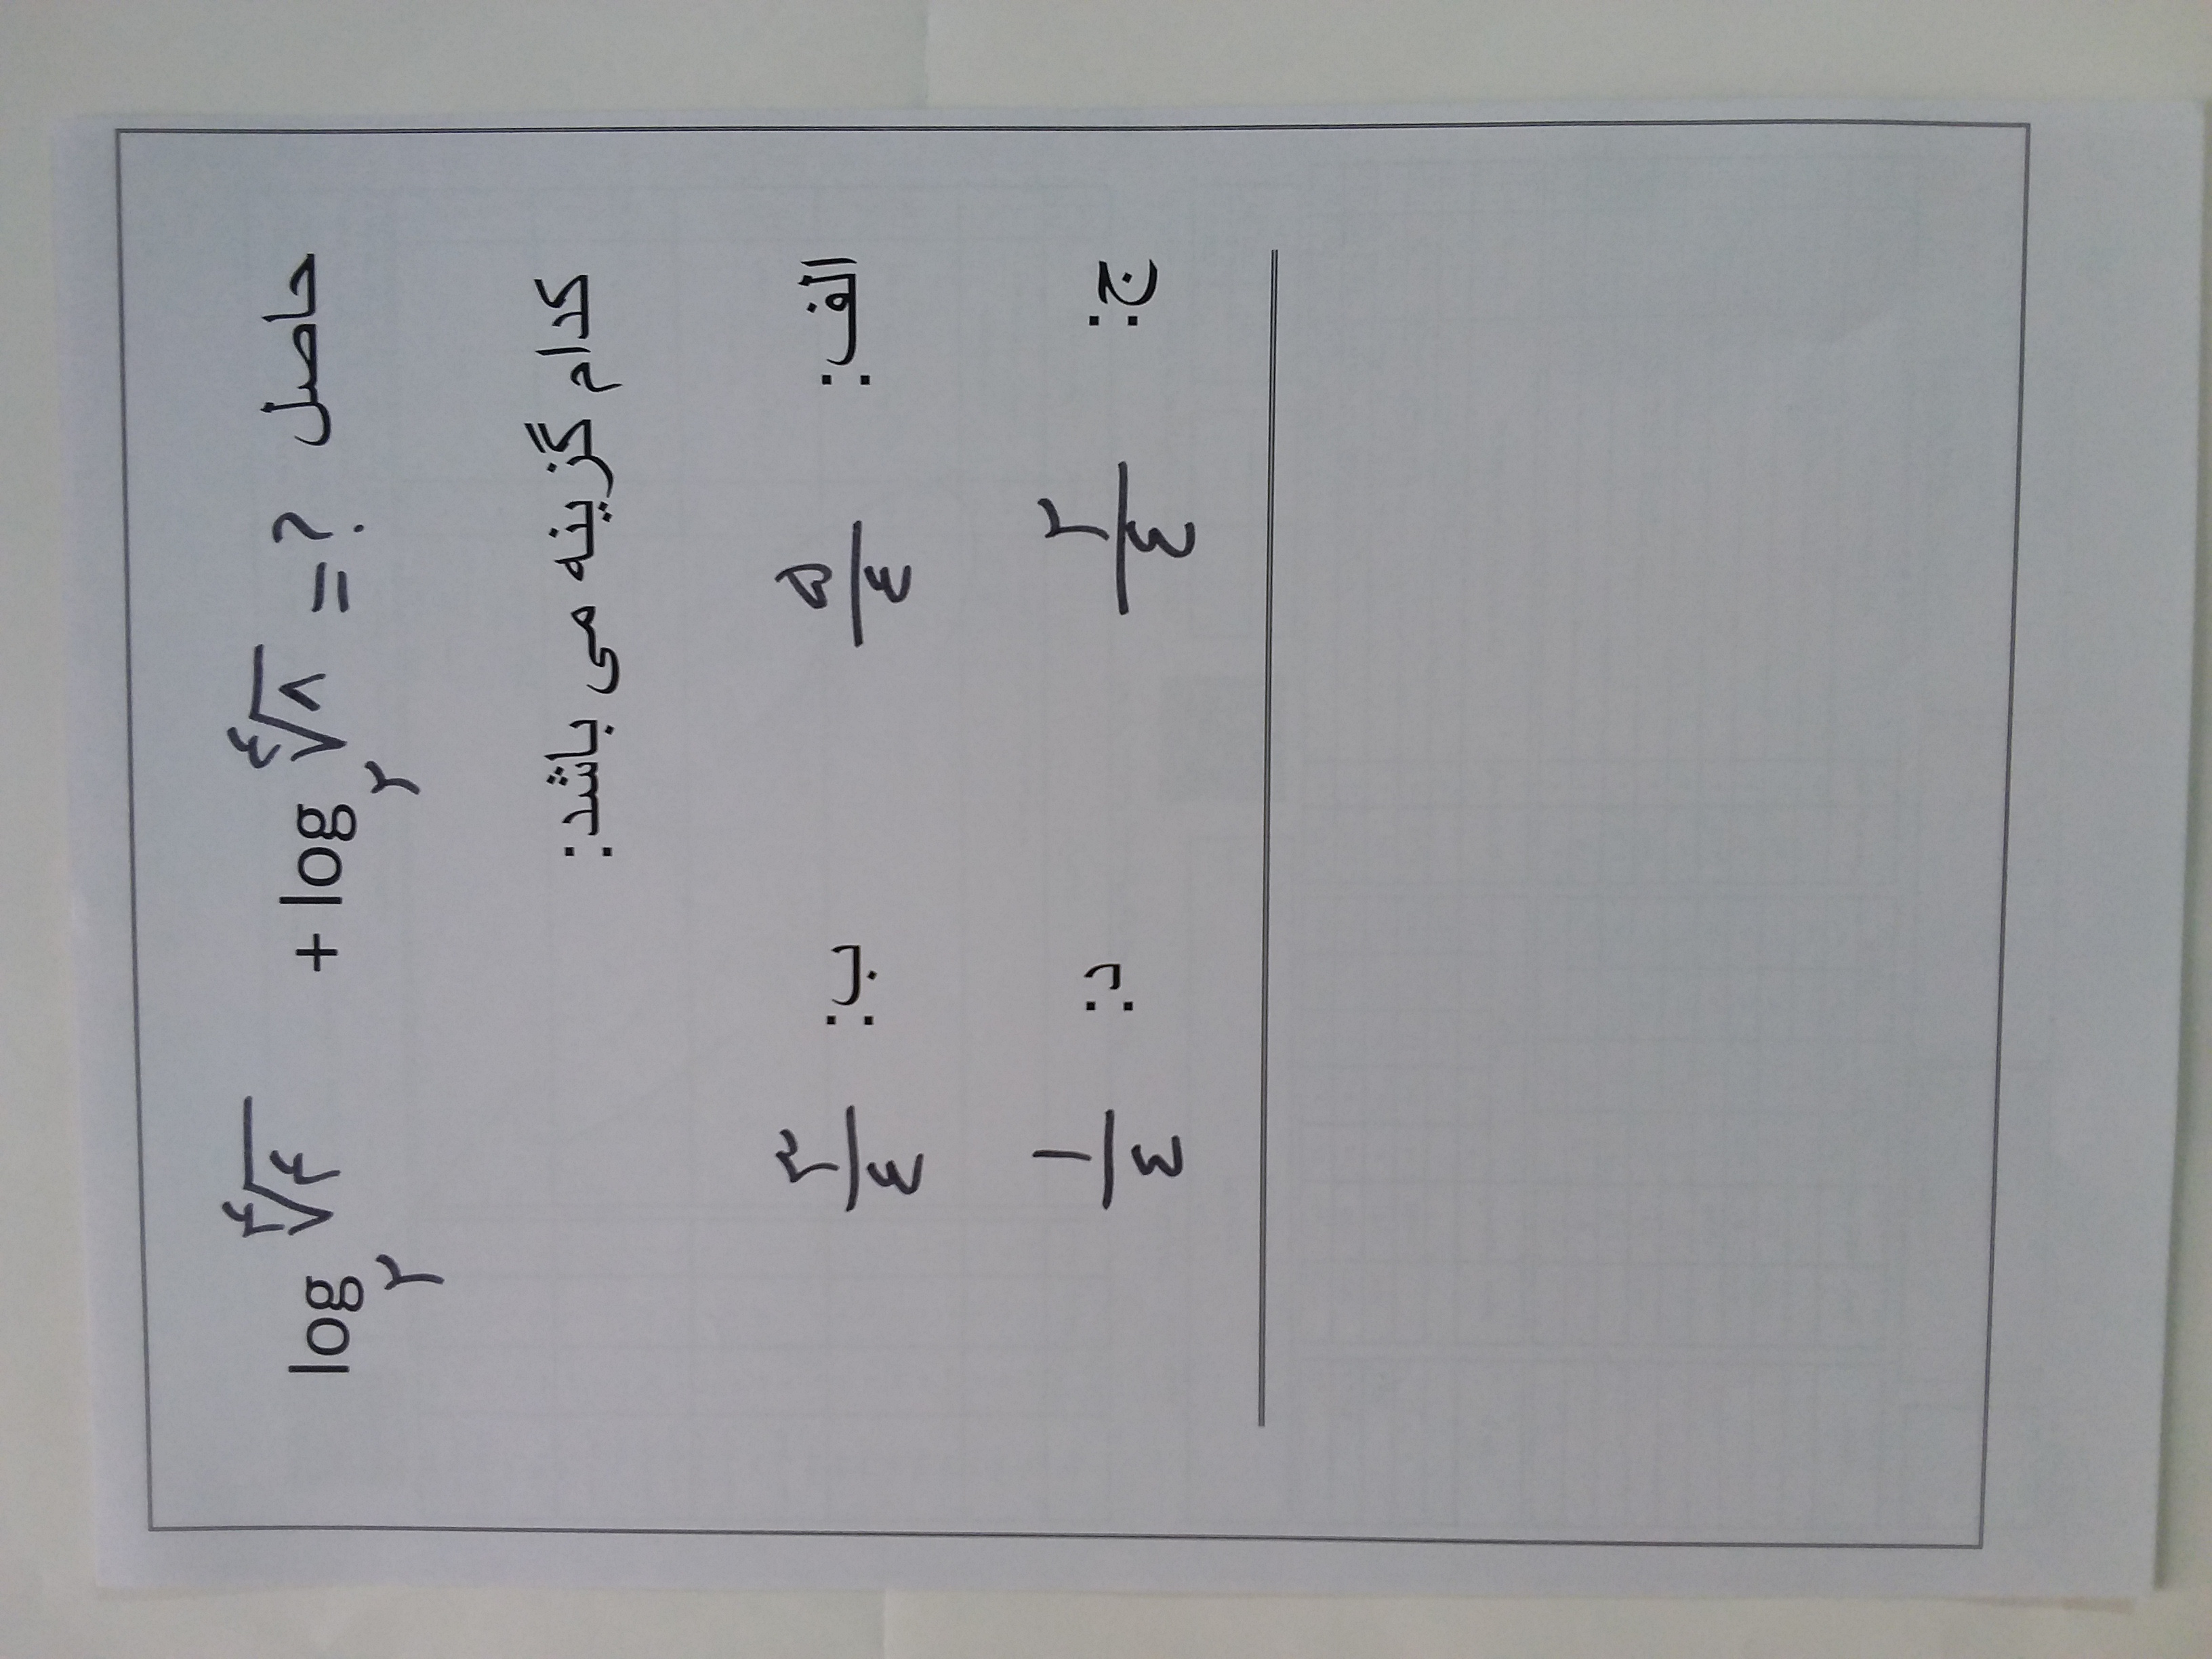 حاصل log₂ ∜۴ + log₂ ∜۸ = ?
کدام گزینه می باشد:
الف: ۵/٤ ب: ۳/٤
ج: ۲/٤ د: ۱/٤